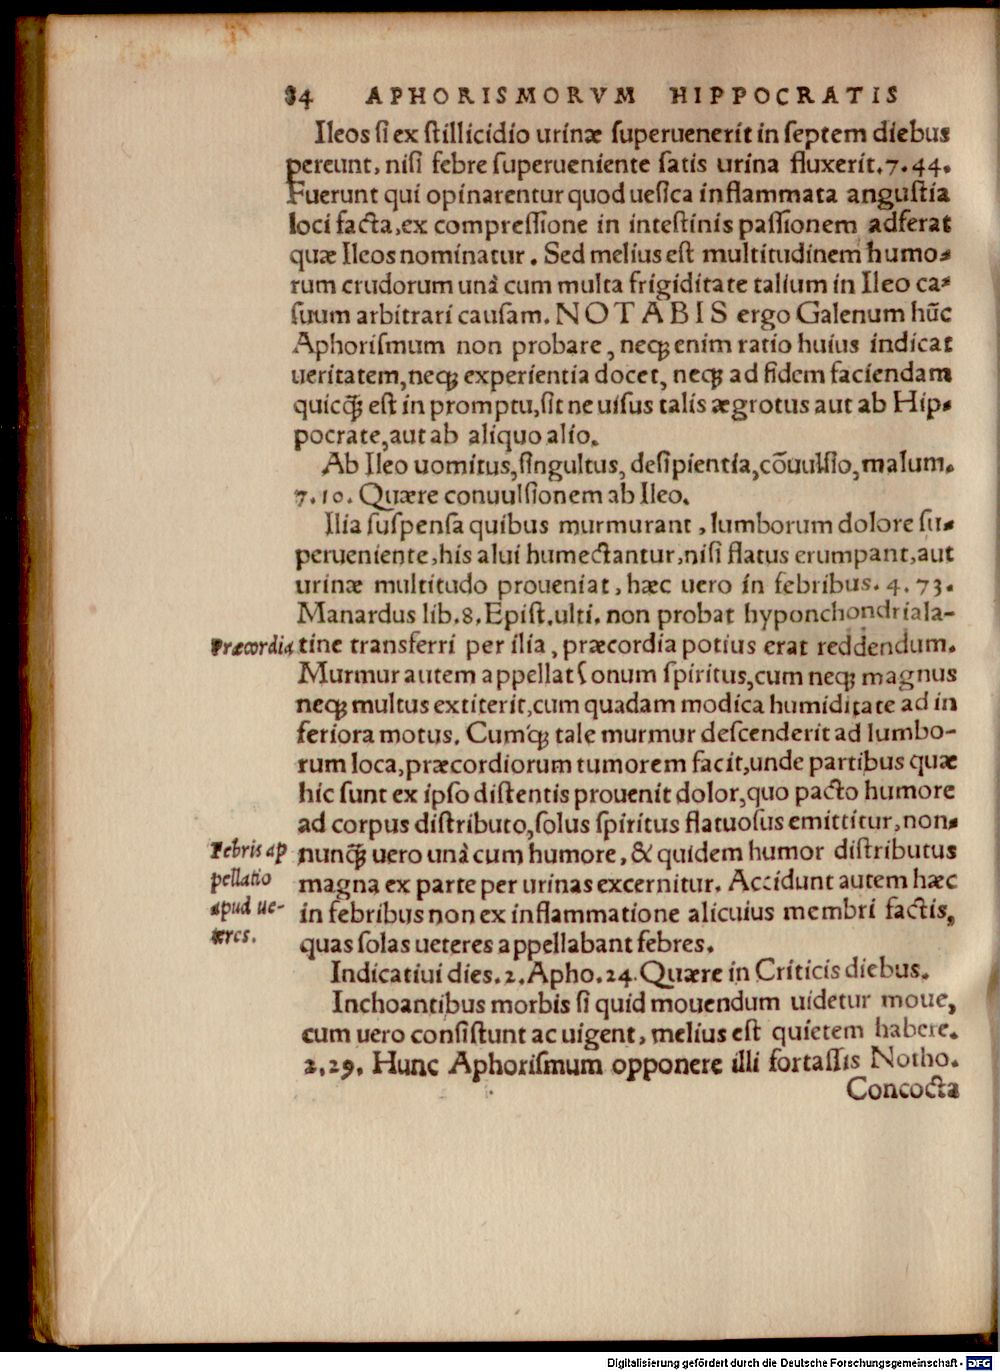 84 APHORISMORVM HIPPOCRATIS
Ileos si ex stillicidio urinæ superuenerit in septem diebus
pereunt, nisi febre superueniente satis urina fluxerit. 7. 44.
Fuerunt qui opinarentur quod uesica inflammata angustia
loci facta, ex compressione in intestinis passionem adferat
quæ Ileos nominatur. Sed melius est multitudinem humo-
rum crudorum unà cum multa frigiditate talium in Ileo ca-
suum arbitrari causam. NOTABIS ergo Galenum hūc
Aphorismum non probare, neqꝫ enim ratio huius indicat
ueritatem, neqꝫ experientia docet, neqꝫ ad fidem faciendam
quicq̃ꝫ est in promptu, sit ne uisus talis ægrotus aut ab Hip-
pocrate, aut ab aliquo alio.
Ab Ileo uomitus, singultus, desipientia, cōuulsio, malum.
7. 10. Quære conuulsionem ab Ileo.
Ilia suspensa quibus murmurant, lumborum dolore su-
perueniente, his alui humectantur, nisi flatus erumpant, aut
urinæ multitudo proueniat, hæc uero in febribus. 4. 73.
Manardus lib. 8. Epist. ulti. non probat hyponchondria la-
Præcordia tine transferri per ilia, præcordia potius erat reddendum.
Murmur autem appellat sonum spiritus, cum neqꝫ magnus
neqꝫ multus extiterit, cum quadam modica humiditate ad in
feriora motus. Cumqꝫ tale murmur descenderit ad lumbo-
rum loca, præcordiorum tumorem facit, unde partibus quæ
hic sunt ex ipso distentis prouenit dolor, quo pacto humore
ad corpus distributo, solus spiritus flatuosus emittitur, non-
Febris ap nunq̃ꝫ uero unà cum humore, & quidem humor distributus
pellatio magna ex parte per urinas excernitur. Accidunt autem hæc
apud ue- in febribus non ex inflammatione alicuius membri factis,
teres. quas solas ueteres appellabant febres.
Indicatiui dies. 2. Apho. 24. Quære in Criticis diebus.
Inchoantibus morbis si quid mouendum uidetur moue,
cum uero consistunt ac uigent, melius est quietem habere.
2. 29. Hunc Aphorismum opponere illi fortassis Notho.
Concocta
Digitalisierung gefördert durch die Deutsche Forschungsgemeinschaft - DFG